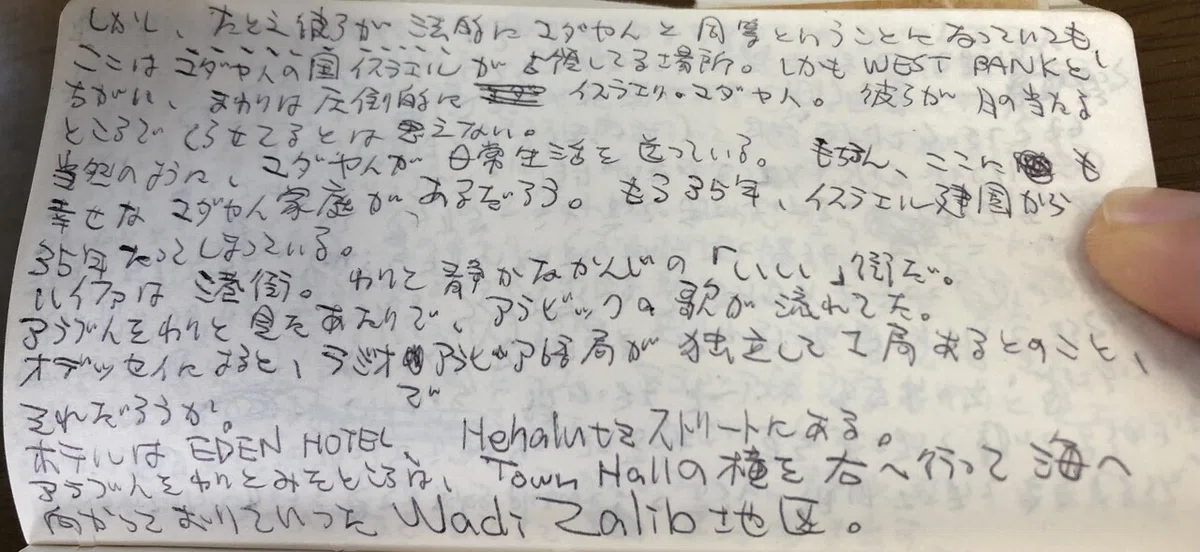 しかし、たとえ彼らが法的にユダヤ人と同等ということになっていても、
ここはユダヤ人の国イスラエルが占領してる場所。しかもWEST BANKと
ちがい、まわりは圧倒的に イスラエリ。ユダヤ人。彼らが日の当たる
ところでくらせてるとは思えない。
当然のように、ユダヤ人が日常生活を送っている。もちろん、ここにも
幸せなユダヤ人家庭があるだろう。もう35年、イスラエル建国から
35年たってしまっている。
ハイファは港街。わりと静かなかんじの「いい」街だ。
アラブ人をわりと見たあたりで、アラビックの歌が流れてた。
オデッセイによると、ラジオでアラビア語局が独立して1局あるとのこと、
それだろうか。
ホテルはEDEN HOTEL、Hehalutzストリートにある。
アラブ人をわりとみたところは、Town Hallの横を右へ行って海へ
向かっておりていったWadi Zalib地区。